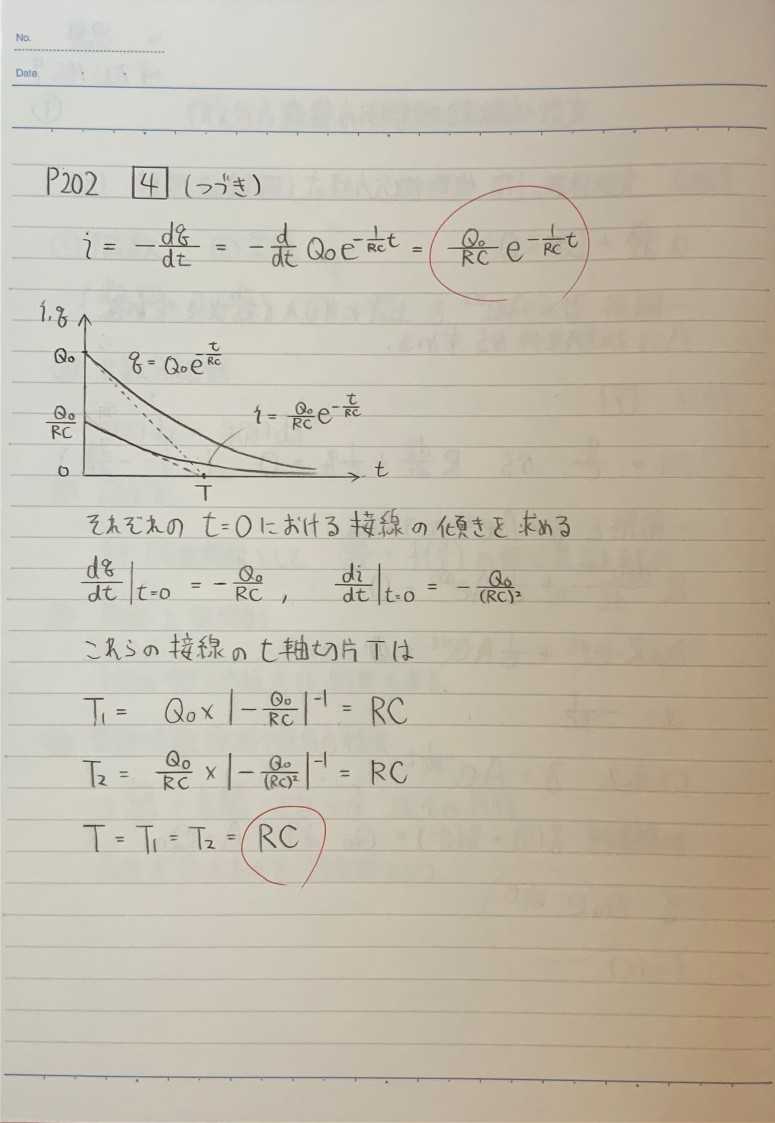 No.
Date
P202 [4] (つづき)
i = -dq/dt = -d/dt Q₀e^(-1/RC t) = Q₀/RC e^(-1/RC t)
i, q
Q₀
q = Q₀e^(-t/RC)
Q₀/RC
i = Q₀/RC e^(-t/RC)
0
t
T
それぞれの t=0における接線の傾きを求める
dq/dt|t=0 = -Q₀/RC , di/dt|t=0 = -Q₀/(RC)²
これらの接線のt軸切片Tは
T₁ = Q₀ × |-Q₀/RC|⁻¹ = RC
T₂ = Q₀/RC × |-Q₀/(RC)²|⁻¹ = RC
T = T₁ = T₂ = RC